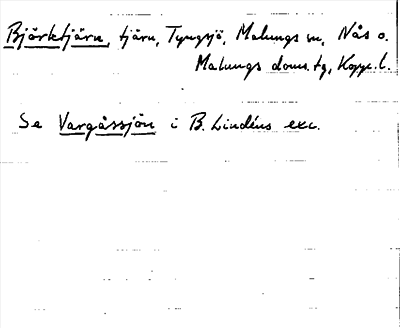 Björktjärn, tjärn, Tyngsjö, Malungs sn, Nås o.
Malungs doms.tg, Kopp. l.
Se Vargåssjön i B. Lindéns exc.